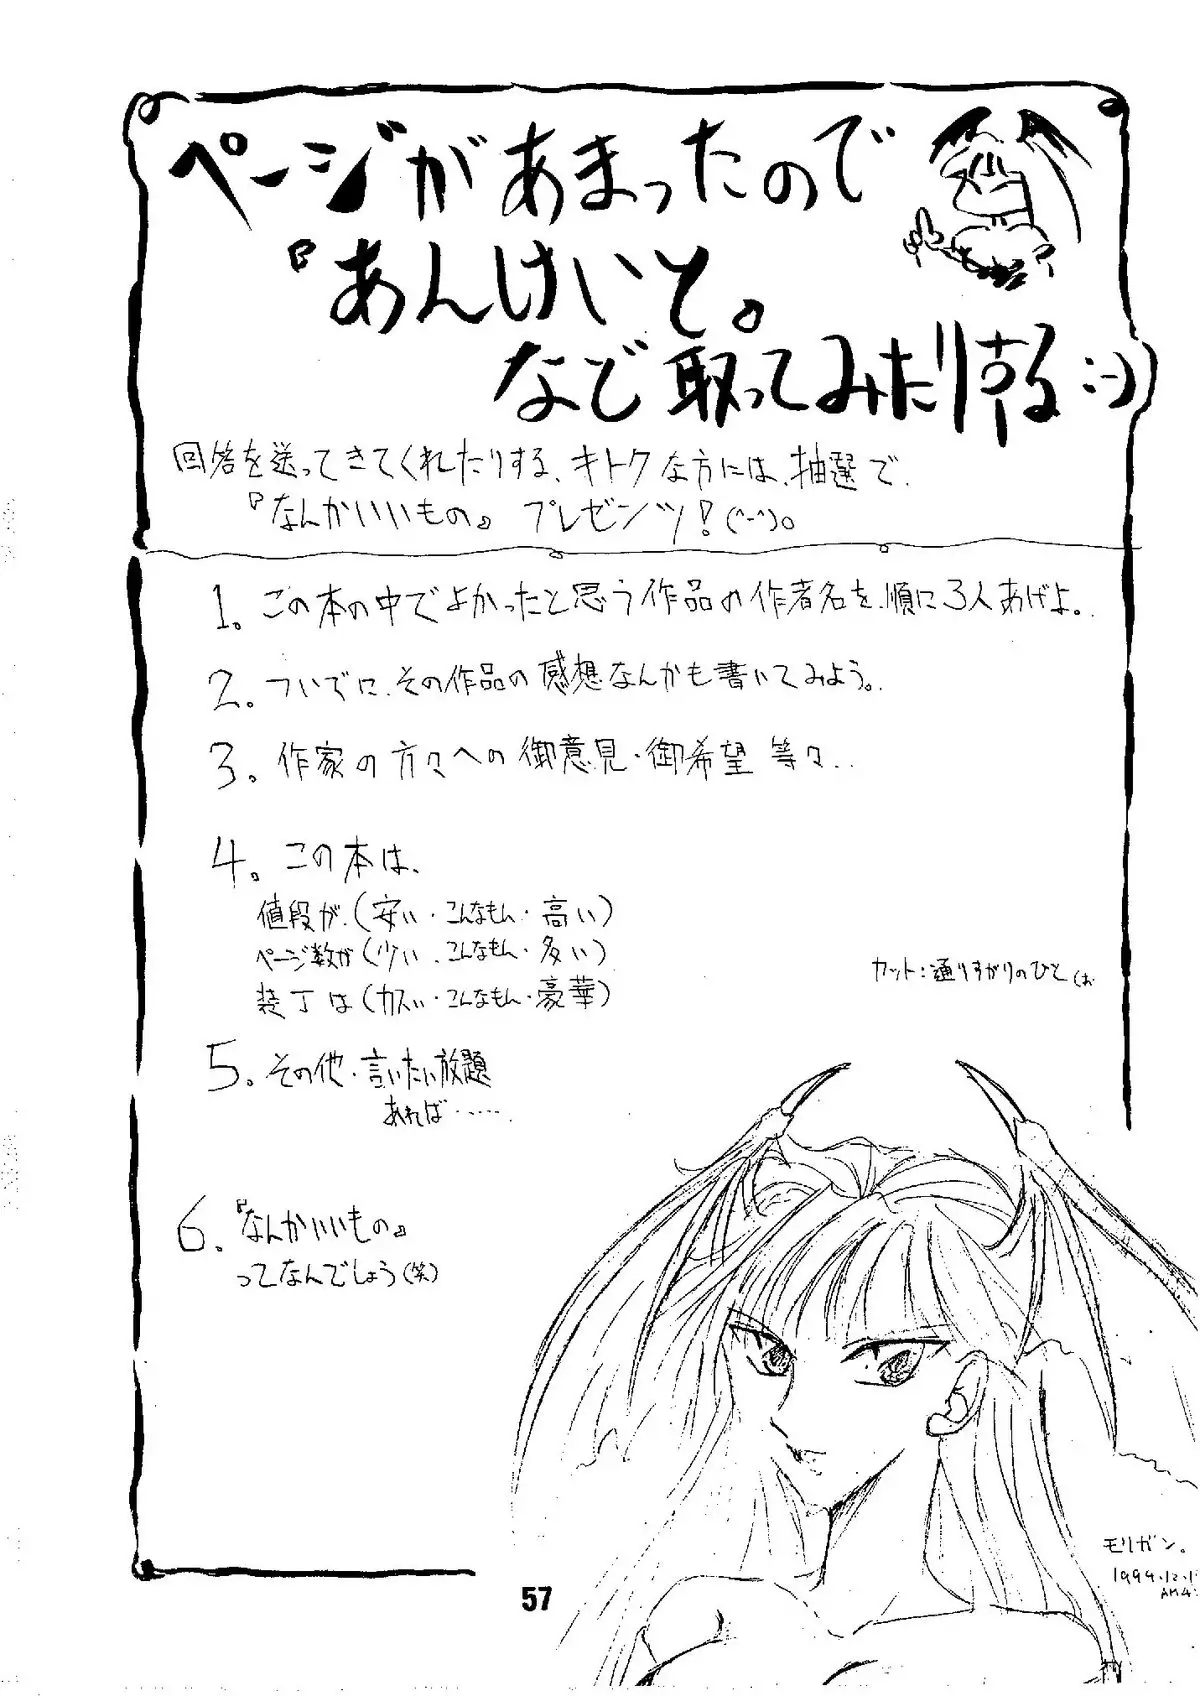 ページがあまったので
『あんけいと。
など取ってみたりする :-)
回答を送ってきてくれたりする、キトクな方には、抽選で、
『なんかいいもの』 プレゼンツ! (^-^)。
1。この本の中でよかったと思う作品の作者名を、順に3人あげよ。
2。ついでに、その作品の感想なんかも書いてみよう。
3。作家の方々への御意見・御希望 等々..
4。この本は、
値段が、(安い・こんなもん・高い)
ページ数が(少い、こんなもん・多い)
装丁は(カスい・こんなもん・豪華)
カット:通りすがりのひと(お
5。その他・言いたい放題
あれば・・・・・・
6。『なんかいいもの』
ってなんでしょう(笑)
モリガン。
1994.12.1
AM4:
57